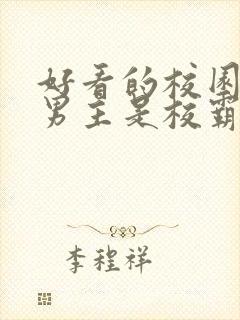 好看的校园
男主是校霸
李程祥